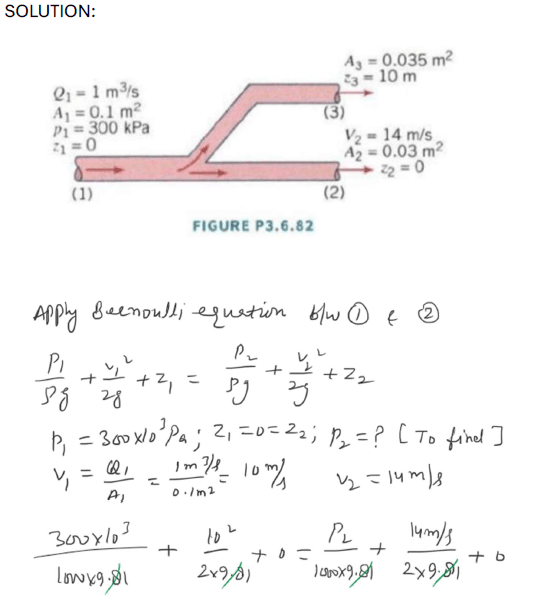 SOLUTION:
A₃ = 0.035 m²
z₃ = 10 m
Q₁ = 1 m³/s
A₁ = 0.1 m²
p₁ = 300 kPa
z₁ = 0
(3)
V₂ = 14 m/s
A₂ = 0.03 m²
z₂ = 0
(1)
(2)
FIGURE P3.6.82
Apply Beenoulli equation b/w ① & ②
P₁/ρg + V₁²/2g + z₁ = P₂/ρg + V₂²/2g + z₂
P₁ = 300×10³ Pa ; z₁ = 0 = z₂ ; P₂ = ? [ To find ]
V₁ = Q₁/A₁ = 1 m³/s / 0.1 m² = 10 m/s V₂ = 14 m/s
300×10³/1000×9.81 + 10²/2×9.81 + 0 = P₂/1000×9.81 + 14 m/s/2×9.81 + 0